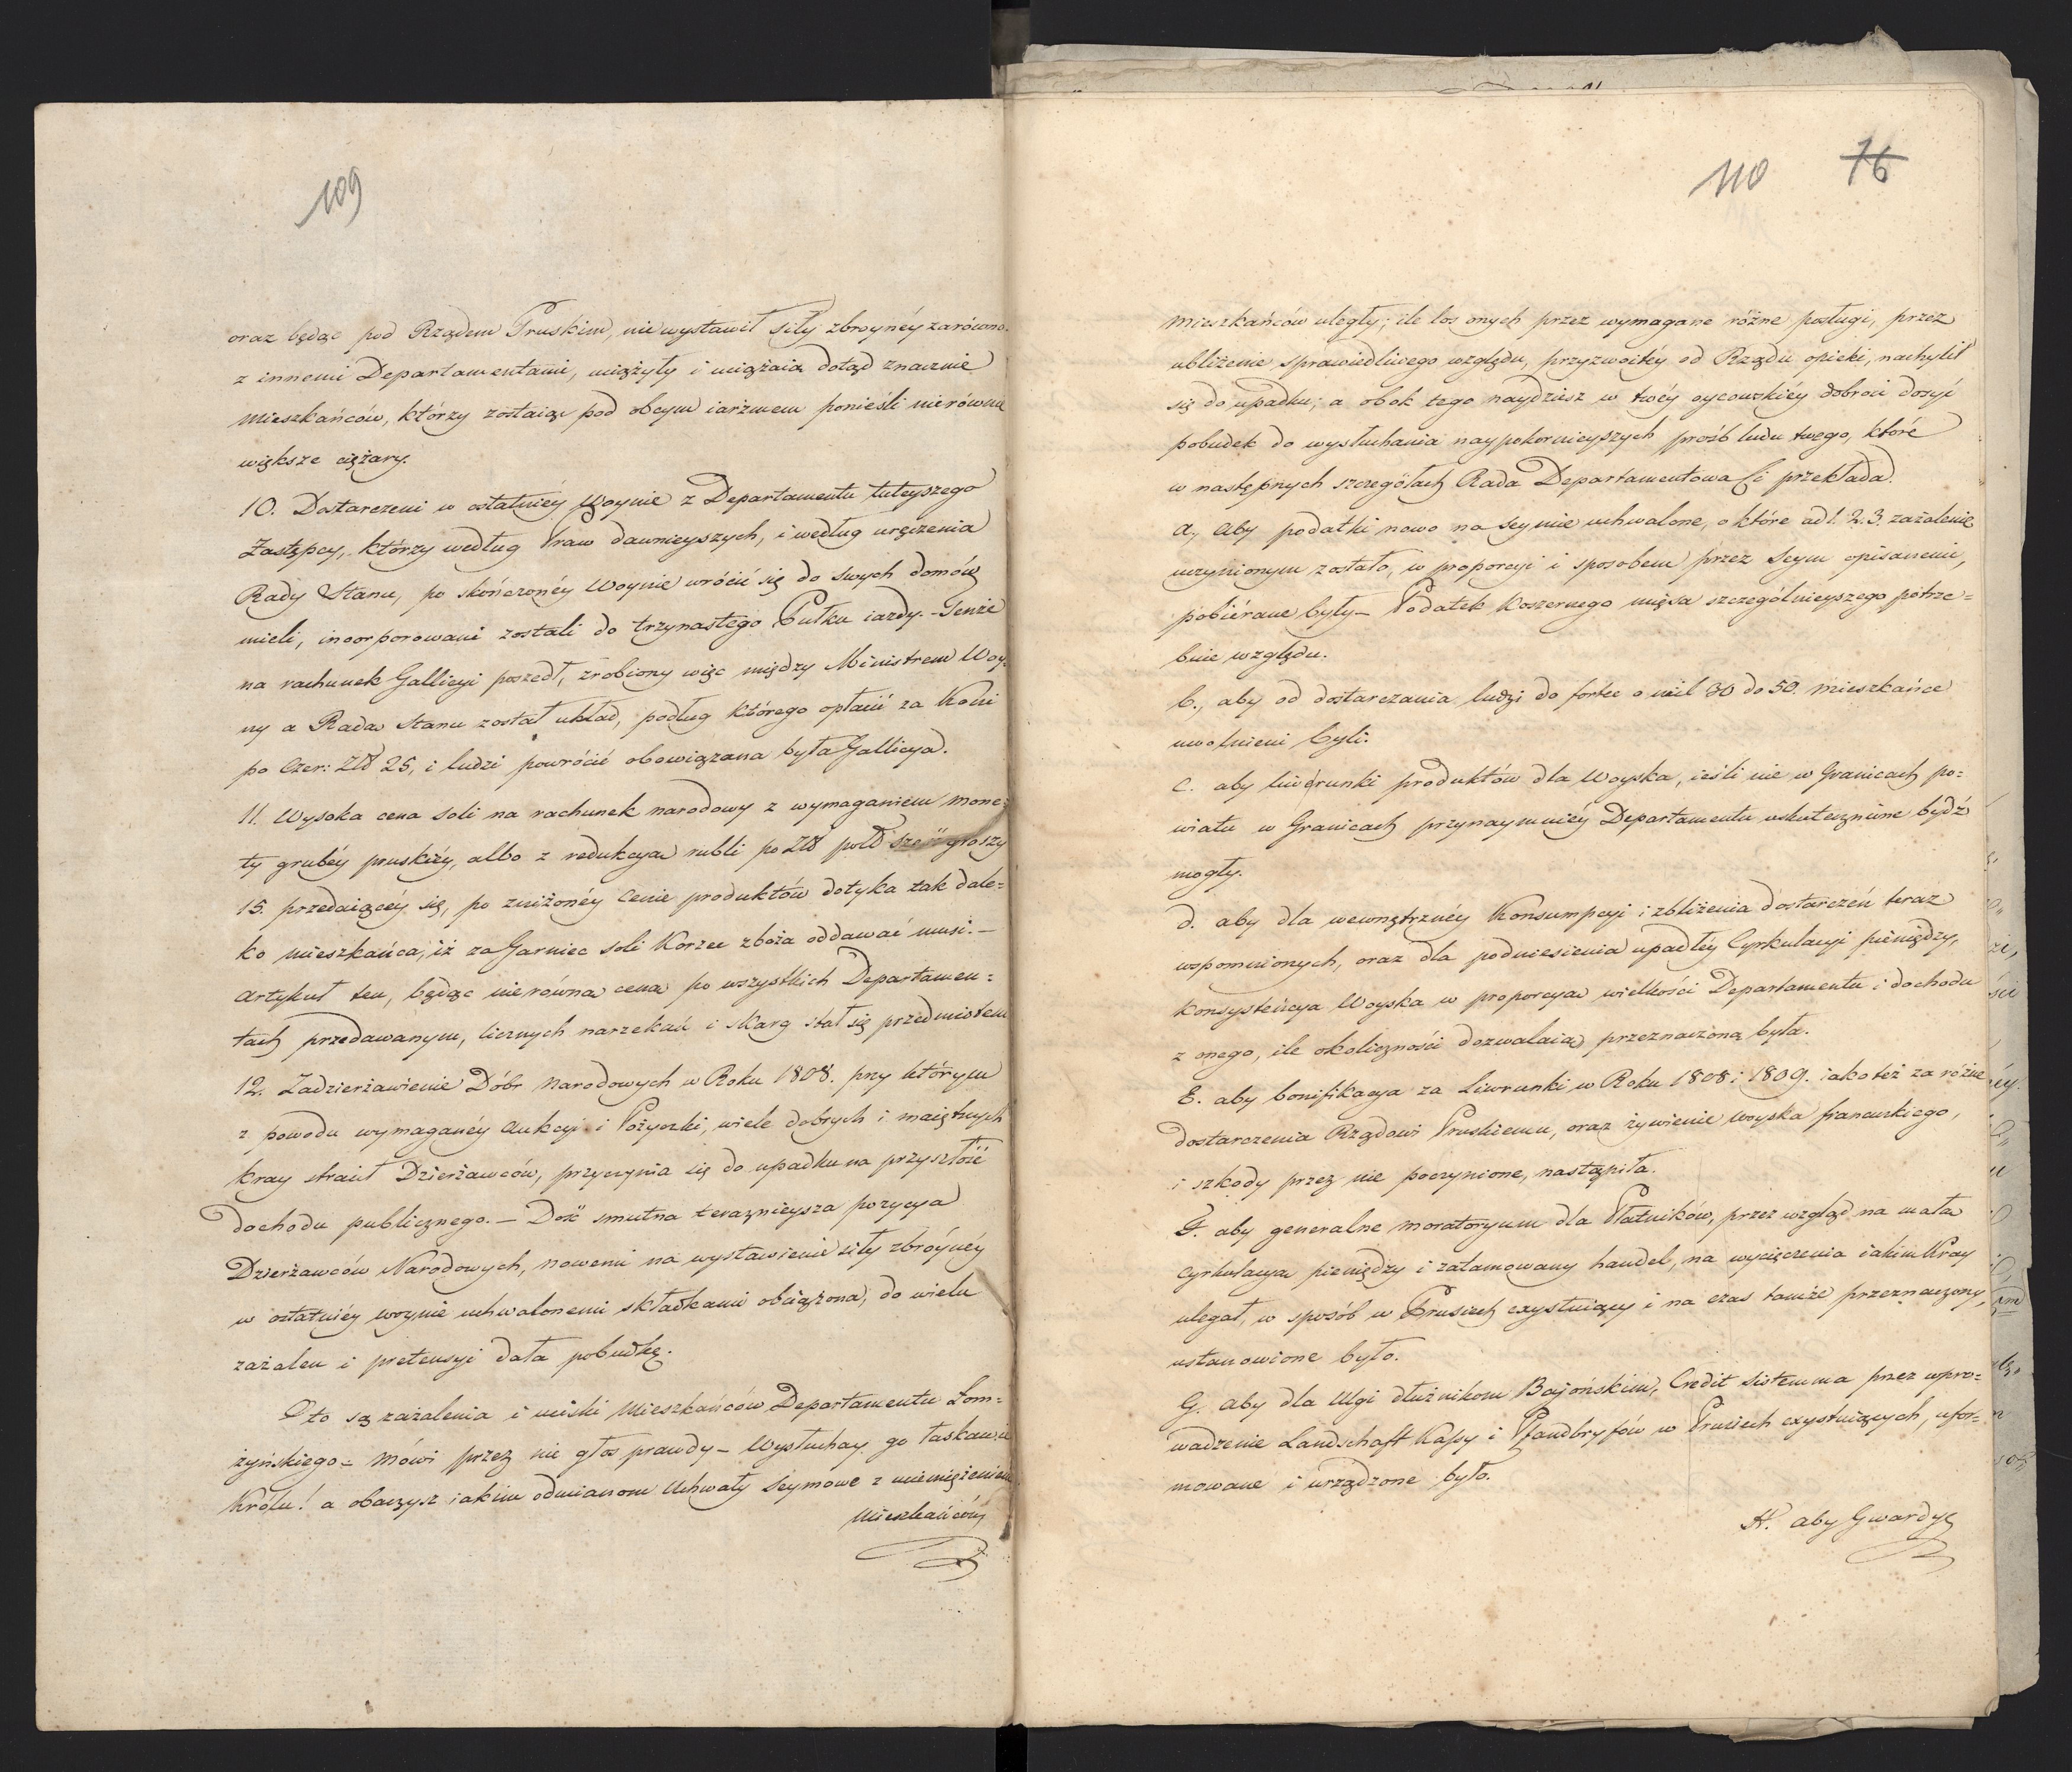 109
oraz będąc pod Rządem Pruskim, nie wystawił siły zbroynéy zarówno
z innemi Departamentami, uciążyły i uciążaią dotąd znacznie
Mieszkańców, którzy zostaiąc pod obcym iarzmem ponieśli nierównie
większe ciężary.
10. Dostarczeni w ostatniéy Woynie z Departamentu tuteyszego
Zastępcy, którzy według Praw dawnieyszych, i według uręczenia
Rady Stanu, po skończonéy Woynie wrócić się do swych domów
mieli, incorporowani zostali do trzynastego Pułku iazdy. - Tenże
na rachunek Gallicyi poszedł, zrobiony więc między Ministrem Woy-
ny a Radą Stanu został układ, podług którego opłacić za Konie
po Czer: Zł 25, i ludzi powrócić obowiązana była Gallicya.
11. Wysoka cena soli na rachunek narodowy z wymaganiem mone-
ty grubéy pruskiéy, albo z redukcyą rubli po Zł pol sześć groszy
15. przedaiącéy się, po zniżonéy Cenie produktów dotyka tak dale-
ko mieszkańca, iż za Garniec soli Korzec zboża oddawać musi. -
Artykuł ten, będąc nierówną ceną po wszystkich Departamen=
tach przedawanym, licznych narzekań i skarg stał się przedmiotem
12. Zadzierżawienie Dóbr Narodowych w Roku 1808. przy którym
z powodu wymaganéy Aukcyi i Pożyczki, wiele dobrych i maiętnych
kray stracił Dzierżawców, przyczynia się do upadku na przyszłość
dochodu publicznego. - Dość smutna teraznieysza pozycya
Dzierżawców Narodowych, nowemi na wystawienie siły zbróynéy
w ostatniéy woynie uchwalonemi składkami obciążona, do wielu
zażaleń i pretensyi dała pobudkę.
Oto są zażalenia i uciski Mieszkańców Departamentu Łom=
żyńskiego - mówi przez nie głos prawdy - Wysłuchay go łaskawie
Królu! a obaczysz iakim odmianom Uchwały Seymowe z uciemiężeniem
Mieszkańców
110 76
Mieszkańców uległy; ile los onych przez wymagane różne posługi, przez
ubliżenie sprawiedliwego względu, przyzwoitéy od Rządu opieki, nachylił
się do upadku; a obok tego naydziesz w twéy oycowskiéy dobroci dosyć
pobudek do wysłuchania naypokornieyszych prośb ludu twego, które
w następnych szczegółach Rada Departamentowa Ci przekłada.
a, Aby podatki nowo na Seymie uchwalone, o które ad 1. 2. 3. zażalenie
uczynionym zostało, w proporcyi i sposobem przez Seym opisanemi,
pobiérane były - Podatek Koszernego mięsa szczególnieyszego potrze=
buie względu.
b., aby od dostarczania ludzi do fortec o mil 30 do 50. mieszkańce
uwolnieni byli.
C. aby liwerunki produktów dla Woyska, ieśli nie w Granicach po=
wiatu w Granicach przynaymniéy Departamentu uskutecznione bydź
mogły.
d. aby dla wewnętrznéy Konsumpcyi i zbliżenia dostarczeń teraz
wspomnionych, oraz dla podniesienia upadłéy Cyrkulacyi pieniędzy,
Konsystencya Woyska w proporcyą wielkości Departamentu i dochodu
z onego, ile okoliczności dozwalaią przeznaczoną była.
E. aby bonifikacya za Liwrunki w Roku 1808 i 1809. iako też za różne
dostarczenia Rządowi Pruskiemu, oraz żywienie woyska francuskiego,
i szkody przez nie poczynione, nastąpiła.
F. aby generalne moratoryum dla Płatników, przez wzgląd na małą
cyrkulacyą pieniędzy i zatamowany handel, na wycięczenia iakim Kray
ulegał, w sposób w Prusiech exystuiący i na czas tamże przeznaczony,
ustanowione było.
G. aby dla Ulgi dłużnikom Bajońskim, Credit Sistemma przez upro=
wadzenie Landschaft Kassy i Pfandbryfów w Prusiech exystuiących, ufor=
mowane i urządzone było.
H. aby Gwardyę